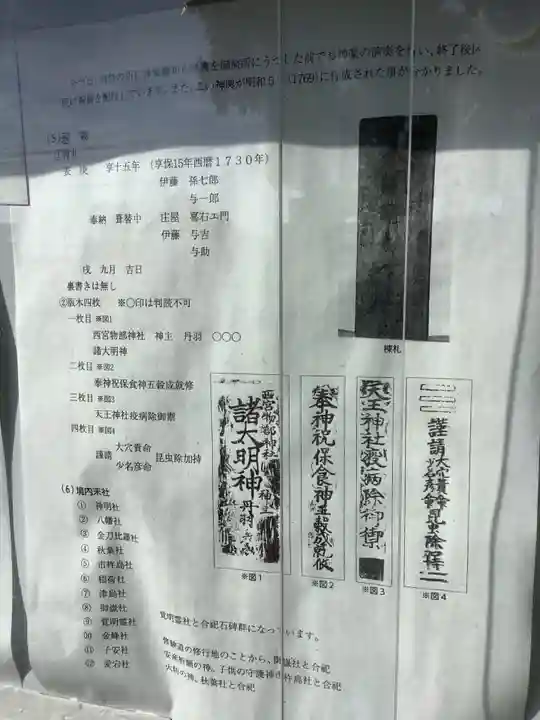 た前でも神楽の演奏を行い、終了後区
また、古い神輿が明和5 (1769)に作成された事が分かりました。
(5)
享十五年 (享保15年西暦1730年)
伊藤 孫七郎
与一郎
奉納 葺替中 庄屋 喜右エ門
伊藤 与吉
与助
戌 九月 吉日
裏書きは無し
②版木四枚 ※〇印は判読不可
一枚目 ※図1
西宮物部神社 神主 丹羽 〇〇〇
諸大明神
二枚目 ※図2
奉神祝保食神五穀成就修
三枚目 ※図3
天王神社疫病除御禦
四枚目 ※図4
大穴貴命
謹請 昆虫除加持
少名彦命
棟札
西宮物部神社 神主
諸大明神
丹羽
※図1
奉神祝保食神五穀成就修
※図2
天王神社疫病除御禦
※図3
謹請
※図4
(6)境内末社
① 神明社
② 八幡社
③ 金刀比羅社
④ 秋葉社
⑤ 市杵島社
⑥ 稲荷社
⑦ 津島社
⑧ 御嶽社
⑨ 覚明霊社
⑩ 金峰社
⑪ 子安社
⑫ 愛宕社
覚明霊社と合祀石碑群になっています。
修験道の修行地のことから、御嶽社と合祀
安産祈願の神、子供の守護神 市杵島社と合祀
火防の神、秋葉社と合祀